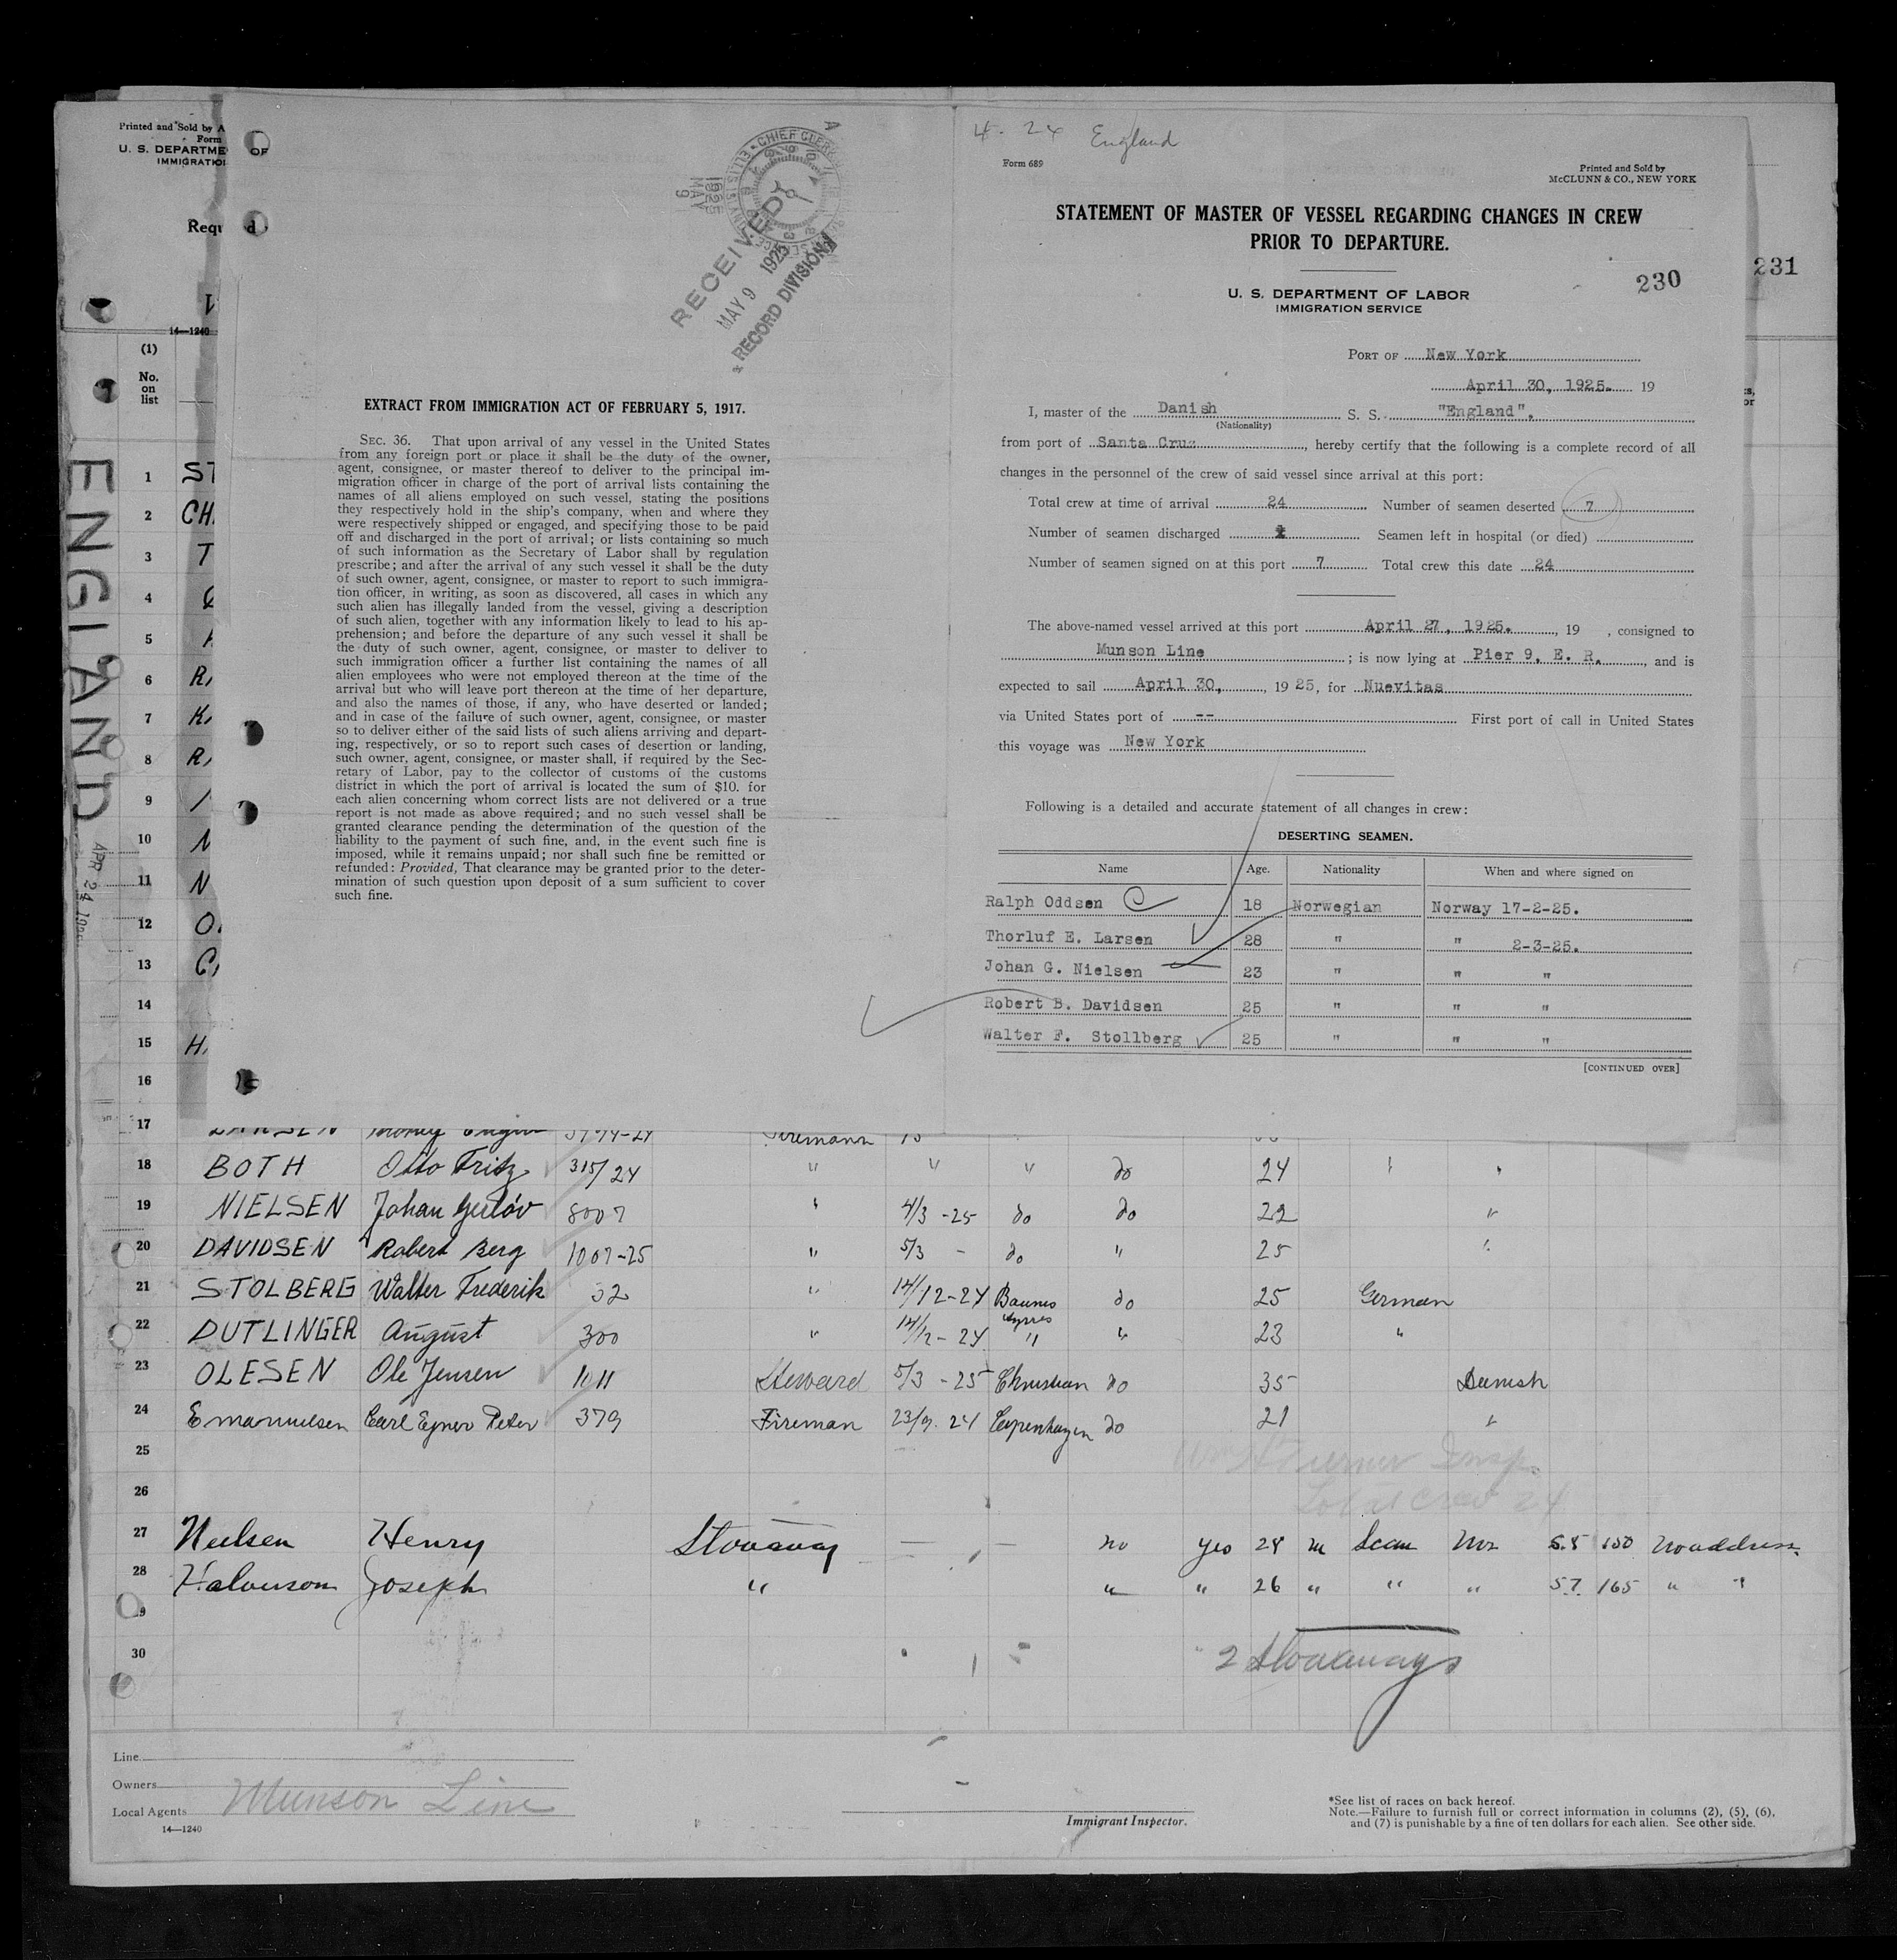 Printed and Sold by A
Form
U. S. DEPARTME OF
IMMIGRATIO
Requ d
14—1240
(1)
No.
on
list
ENGLAND
APR 24
1 ST
2 CH
3 T
4
5
6 R
7 K
8 R
9
10 N
11 N
12 O
13 C
14
15 H
16
CHIEF CLERK
ELLIS IS.
1925
MAY
9
RECEIVED
MAY 9 1925
RECORD DIVISION
EXTRACT FROM IMMIGRATION ACT OF FEBRUARY 5, 1917.
SEC. 36. That upon arrival of any vessel in the United States
from any foreign port or place it shall be the duty of the owner,
agent, consignee, or master thereof to deliver to the principal im-
migration officer in charge of the port of arrival lists containing the
names of all aliens employed on such vessel, stating the positions
they respectively hold in the ship's company, when and where they
were respectively shipped or engaged, and specifying those to be paid
off and discharged in the port of arrival; or lists containing so much
of such information as the Secretary of Labor shall by regulation
prescribe; and after the arrival of any such vessel it shall be the duty
of such owner, agent, consignee, or master to report to such immigra-
tion officer, in writing, as soon as discovered, all cases in which any
such alien has illegally landed from the vessel, giving a description
of such alien, together with any information likely to lead to his ap-
prehension; and before the departure of any such vessel it shall be
the duty of such owner, agent, consignee, or master to deliver to
such immigration officer a further list containing the names of all
alien employees who were not employed thereon at the time of the
arrival but who will leave port thereon at the time of her departure,
and also the names of those, if any, who have deserted or landed;
and in case of the failure of such owner, agent, consignee, or master
so to deliver either of the said lists of such aliens arriving and depart-
ing, respectively, or so to report such cases of desertion or landing,
such owner, agent, consignee, or master shall, if required by the Sec-
retary of Labor, pay to the collector of customs of the customs
district in which the port of arrival is located the sum of $10. for
each alien concerning whom correct lists are not delivered or a true
report is not made as above required; and no such vessel shall be
granted clearance pending the determination of the question of the
liability to the payment of such fine, and, in the event such fine is
imposed, while it remains unpaid; nor shall such fine be remitted or
refunded: Provided, That clearance may be granted prior to the deter-
mination of such question upon deposit of a sum sufficient to cover
such fine.
4. 24 England
Form 689
Printed and Sold by
McCLUNN & CO., NEW YORK
STATEMENT OF MASTER OF VESSEL REGARDING CHANGES IN CREW
PRIOR TO DEPARTURE.
230
231
U. S. DEPARTMENT OF LABOR
IMMIGRATION SERVICE
PORT OF New York
April 30, 1925. 19
I, master of the Danish S. S. "England",
(Nationality)
from port of Santa Cruz, hereby certify that the following is a complete record of all
changes in the personnel of the crew of said vessel since arrival at this port:
Total crew at time of arrival 24 Number of seamen deserted 7
Number of seamen discharged Seamen left in hospital (or died)
Number of seamen signed on at this port 7 Total crew this date 24
The above-named vessel arrived at this port April 27, 1925., 19 , consigned to
Munson Line; is now lying at Pier 9, E. R., and is
expected to sail April 30, 1925, for Nuevitas
via United States port of -- First port of call in United States
this voyage was New York
Following is a detailed and accurate statement of all changes in crew:
DESERTING SEAMEN.
Name Age. Nationality When and where signed on
Ralph Oddsen 18 Norwegian Norway 17-2-25.
Thorluf E. Larsen 28 " " 2-3-25.
Johan G. Nielsen 23 " " "
Robert B. Davidsen 25 " " "
Walter F. Stollberg 25 " " "
[CONTINUED OVER]
17 Firemann
18 BOTH Otto Fritz 315/24 " " " do 24
19 NIELSEN Johan 8007 " 4/3 -25 do do 22 "
20 DAVIDSEN Robert Berg 1007-25 " 5/3 - do " 25
21 STOLBERG Walter Frederik 32 " 14/12-24 Baunes Ayres do 25 German
22 DUTLINGER August 300 " 14/12-24 " " 23 "
23 OLESEN Ole Jensen 1011 Steward 5/3 -25 Christian do 35 Danish
24 Emanuelsen Carl Ejner Peter 379 Fireman 23/9. 24 Copenhagen do 21 "
25
26 Total crew 24
27 Nielsen Henry Stowaway — — no yes 24 m Scan Nor 5.5 150 No address.
28 Halvorson Joseph " " " 26 " " " 5.7. 165 " "
29
30 2 Stowaways
Line
Owners
Local Agents Munson Line
14—1240
Immigrant Inspector.
*See list of races on back hereof.
Note.—Failure to furnish full or correct information in columns (2), (5), (6),
and (7) is punishable by a fine of ten dollars for each alien. See other side.